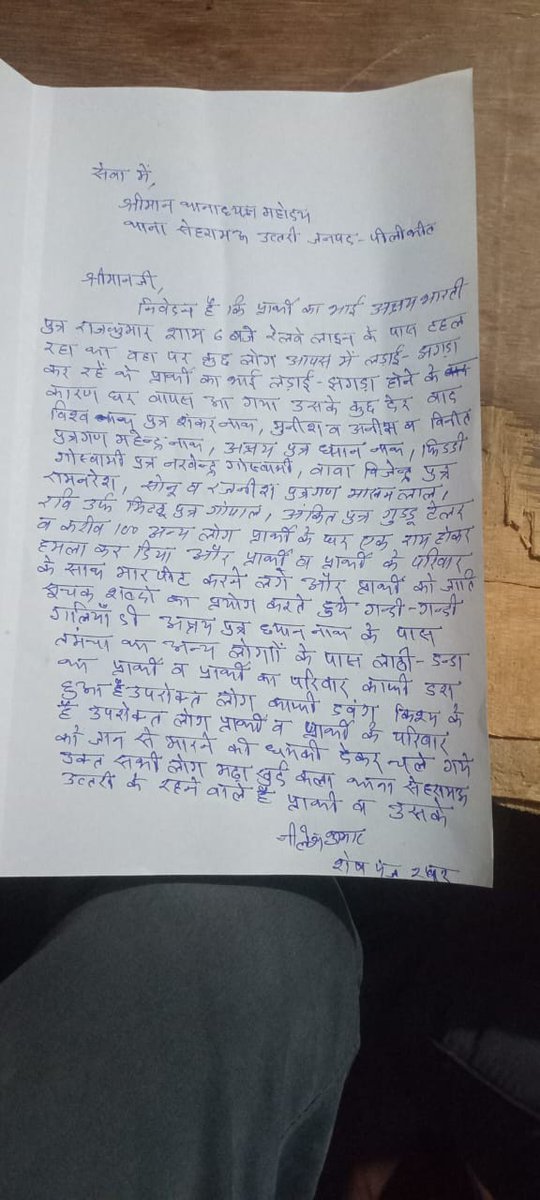 सेवा में,
श्रीमान थानाध्यक्ष महोदय
थाना सेहरामऊ उत्तरी जनपद - पीलीभीत
श्रीमानजी,
निवेदन है कि प्रार्थी का भाई अक्षय भारती
पुत्र राजकुमार शाम 6 बजे रेलवे लाइन के पास टहल
रहा था वहा पर कुछ लोग आपस में लडाई-झगडा
कर रहें थे प्रार्थी का भाई लडाई-झगडा होने के
कारण घर वापस आ गया उसके कुछ देर बाद
विश्व नाथ पुत्र शंकर नाथ, मुनीश व अनीस व विनीत
पुत्रगण महेन्द्र नाथ, अक्षय पुत्र ध्यान नाथ,
गोस्वामी पुत्र नरवेन्द्र गोस्वामी, बाबा विजेन्द्र पुत्र
रामनरेश, सोनू व रजनीश पुत्रगण लाल,
रवि उर्फ पुत्र गोपाल, अंकित पुत्र गुड्डू टेलर
व करीब 100 अन्य लोग प्रार्थी के घर एक राय होकर
हमला कर दिया और प्रार्थी व प्रार्थी के परिवार
के साथ मारपीट करने लगे और प्रार्थी को जाति
सूचक शब्दो का प्रयोग करते हुये गन्दी-गन्दी
गालियाँ दी अक्षय पुत्र ध्यान नाथ के पास
तमंचा था अन्य लोगों के पास लाठी-डन्डा
था प्रार्थी व प्रार्थी का परिवार काफी डरा
हुआ है उपरोक्त लोग काफी दबंग किश्म के
है उपरोक्त लोग प्रार्थी व प्रार्थी के परिवार
को जान से मारने की धमकी देकर चले गये
उक्त सभी लोग मढ़ा खुर्द कला थाना सेहरामऊ
उत्तरी के रहने वाले है प्रार्थी व उसके
नीलेश कुमार
शेष पेज 2 पर